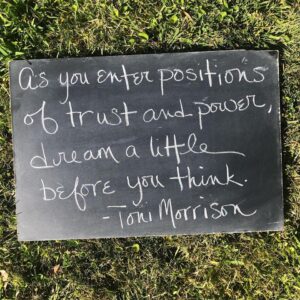 As you enter positions
of trust and power,
dream a little
before you think.
-Toni Morrison